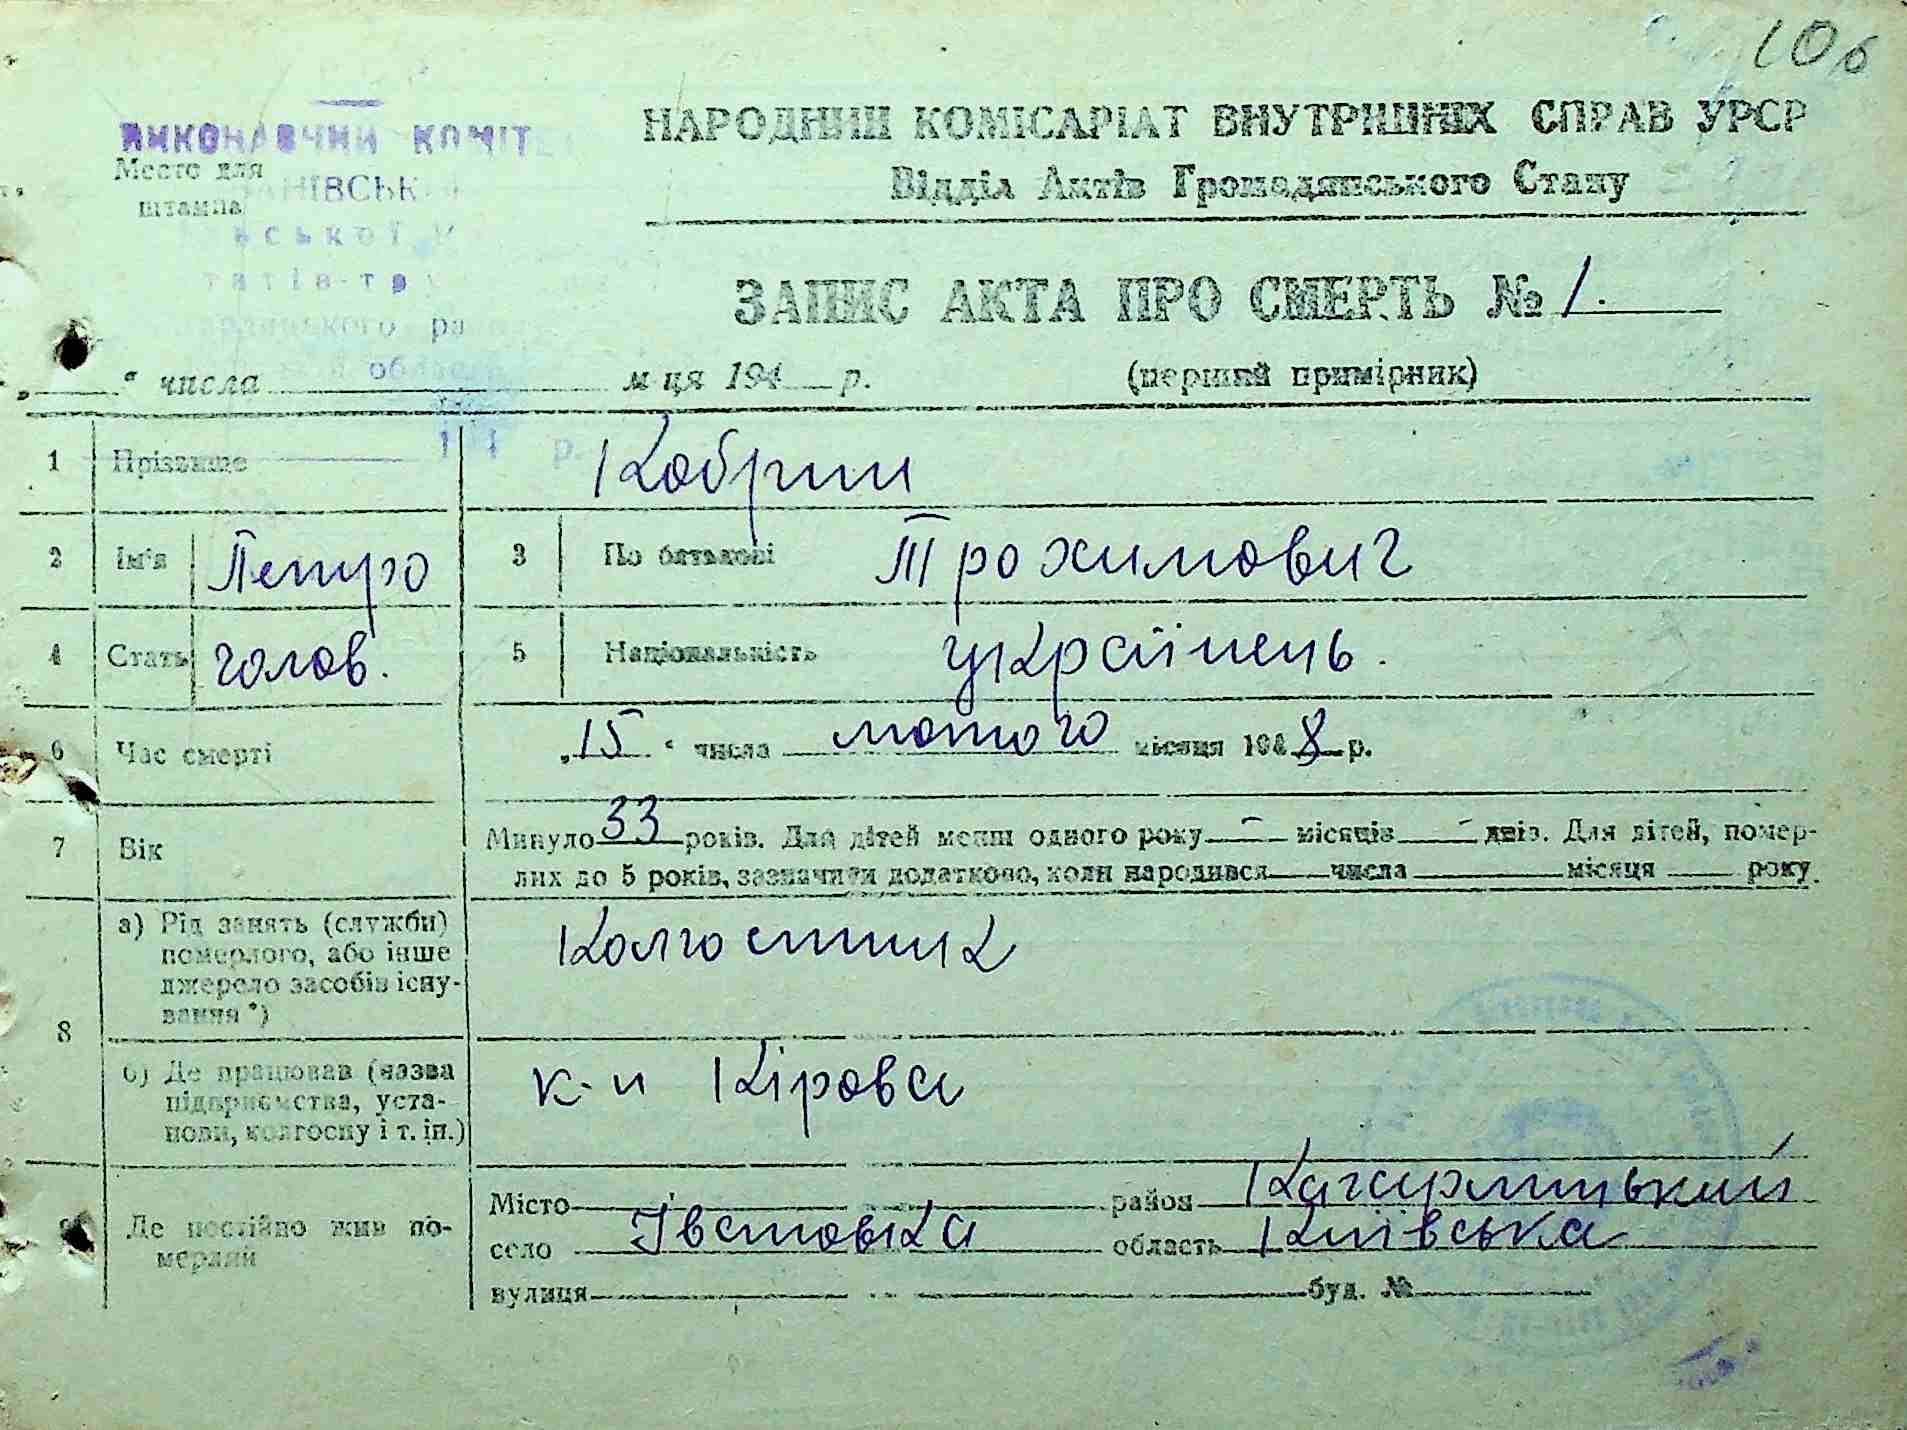 106
ВИКОНАВЧИЙ КОМІТЕ
Место для
штампа
АНІВСЬК
ської
татів-тру
ра
обла
НАРОДНИЙ КОМІСАРІАТ ВНУТРИШНІХ СПРАВ УРСР
Відділ Актів Громадянського Стану
ЗАПИС АКТА ПРО СМЕРТЬ № 1.
„ “ числа м-ця 194 р. (перший примірник)
1 Прізвище Кобрин
2 Ім'я Петро 3 По батькові Трохимович
4 Стать чолов. 5 Національність українець.
6 Час смерті „15“ числа лютого місяця 1948 р.
7 Вік Минуло 33 років. Для дітей менш одного року - місяців - днів. Для дітей, помер-
лих до 5 років, зазначити додатково, коли народився числа місяця року
8 а) Рід занять (служби)
померлого, або інше
джерело засобів існу-
вання *)
Колгоспник
б) Де працював (назва
підприємства, уста-
нови, колгоспу і т. ін.)
к-п Кірова
9 Де постійно жив по-
мерлий
Місто район Кагарлицький
село область Київська
вулиця буд. №